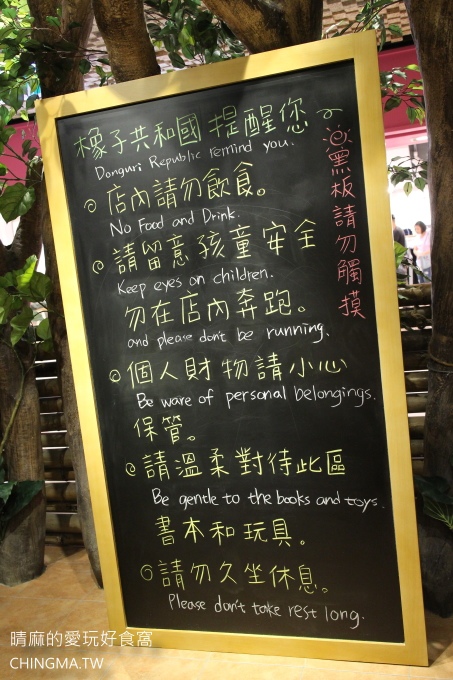 橡子共和國 提醒您
Donguri Republic remind you.
店內請勿飲食。
No Food and Drink.
請留意孩童安全
Keep eyes on children.
勿在店內奔跑。
and please don't be running.
個人財物請小心
Be ware of personal belongings.
保管。
請溫柔對待此區
Be gentle to the books and toys.
書本和玩具。
請勿久坐休息。
Please don't take rest long.
黑板請勿觸摸
晴麻的愛玩好食窩
CHINGMA.TW